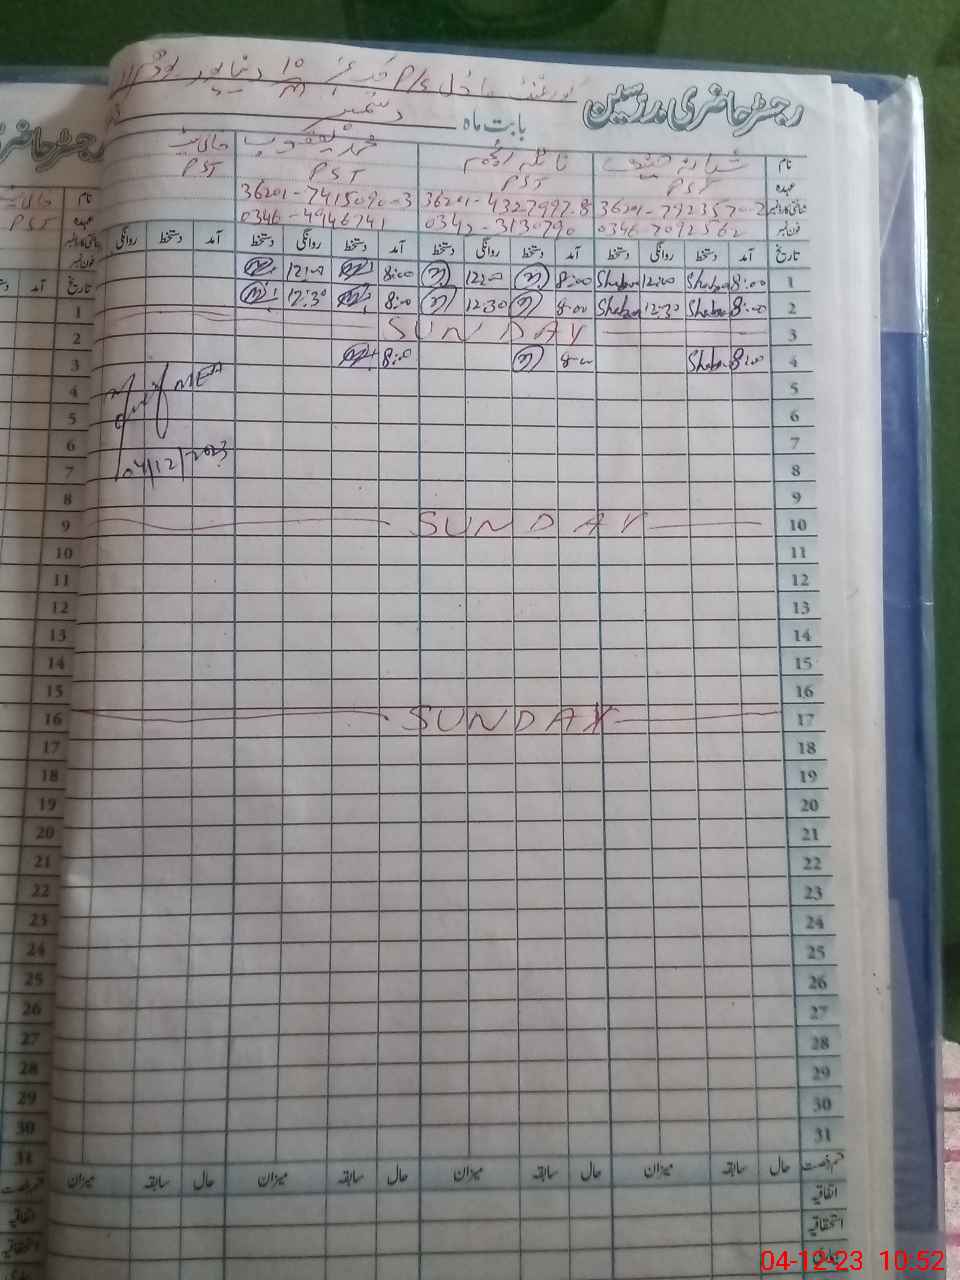 رجسٹر حاضری مدرسین
بابت ماہ دسمبر
نام شبانہ نائلہ انجم محمد یعقوب خالی سیٹ
عہدہ PST PST PST PST
شناختی کارڈ نمبر 36201-7923570-2 36201-4327997-8 36201-7415090-3
فون نمبر 0346-7092562 0342-3130790 0346-4946741
تاریخ آمد دستخط روانگی دستخط آمد دستخط روانگی دستخط آمد دستخط روانگی دستخط آمد دستخط روانگی
1 8:00 Shaban 12:00 Shaban 8:00 12:00 8:00 12:00
2 8:00 Shaban 12:30 Shaban 8:00 12:30 8:00 12:30
3 SUNDAY
4 8:00 Shaban 8:00 8:00
5 MEA
6
7
8 04/12/2023
9
10 SUNDAY
11
12
13
14
15
16
17 SUNDAY
18
19
20
21
22
23
24
25
26
27
28
29
30
31
قسم رخصت حال سابقہ میزان حال سابقہ میزان حال سابقہ میزان حال سابقہ میزان
اتفاقیہ
استحقاقیہ
نام خالی
عہدہ PST
فون نمبر
تاریخ آمد
1
2
3
4
5
6
7
8
9
10
11
12
13
14
15
16
17
18
19
20
21
22
23
24
25
26
27
28
29
30
31
قسم رخصت
اتفاقیہ
استحقاقیہ
04-12-23 10:52